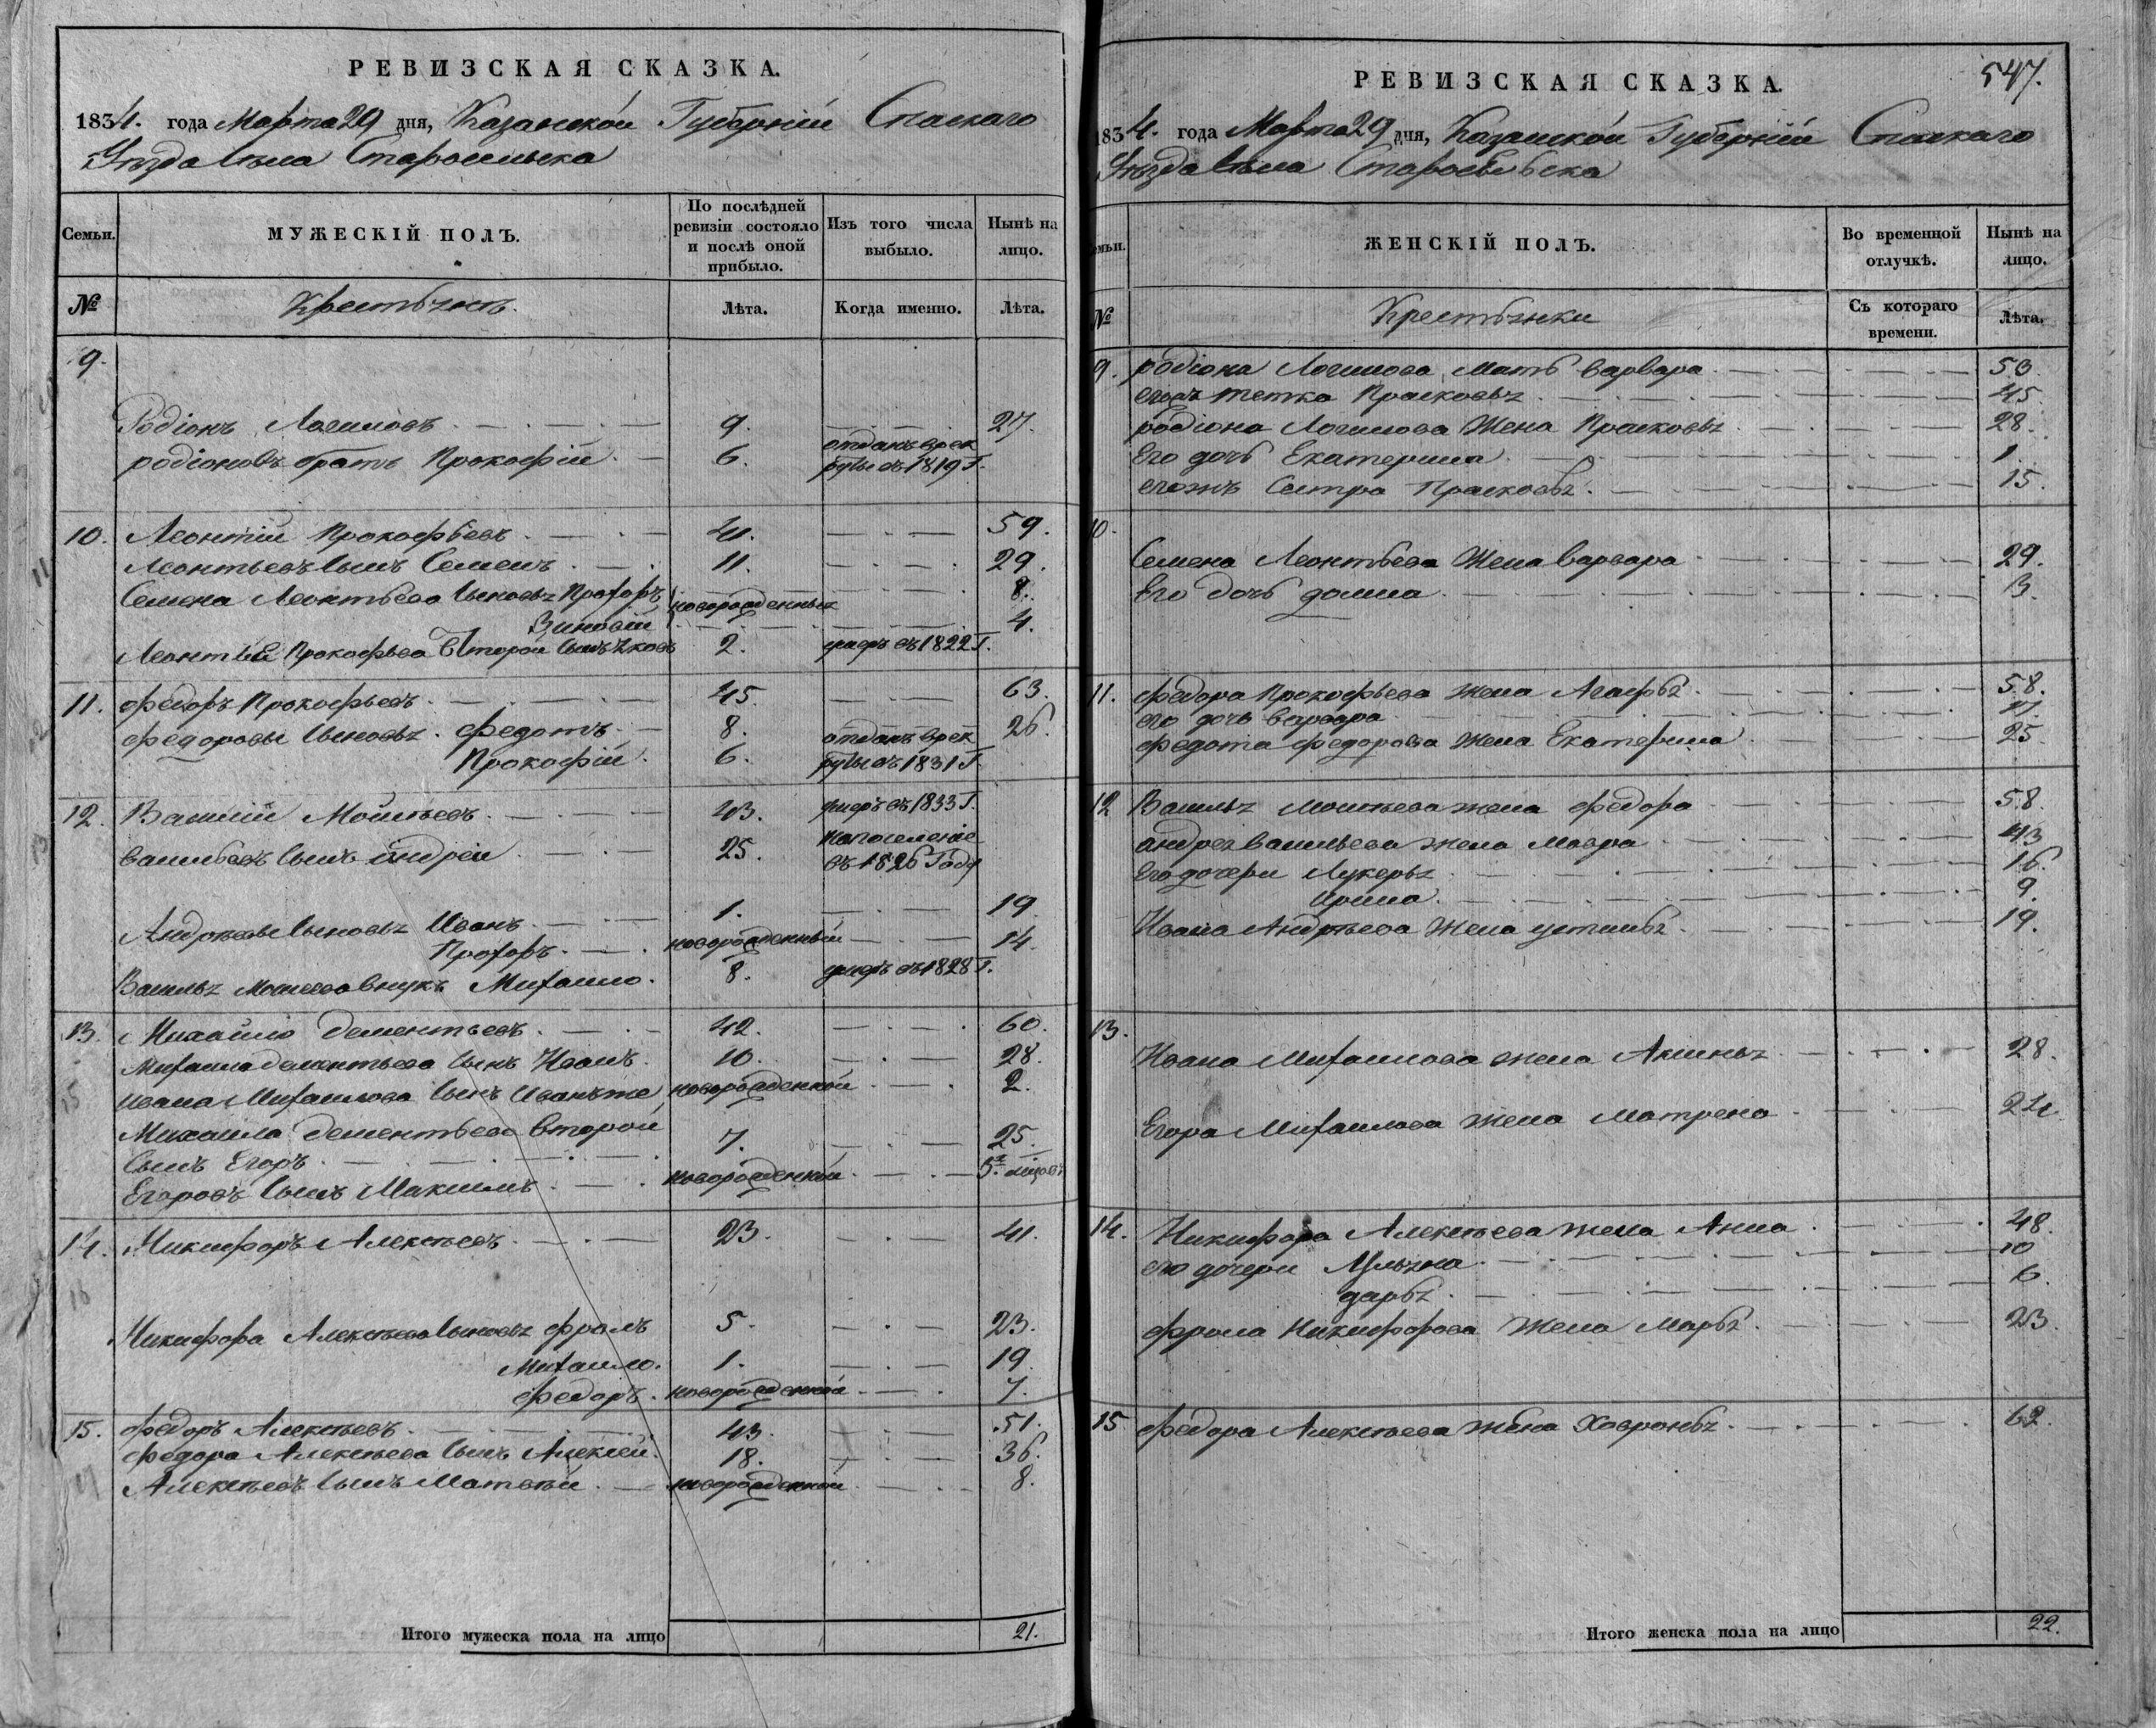 РЕВИЗСКАЯ СКАЗКА.
1834. года Марта 29 дня, Казанской Губернiи Спаскаго
Уѣзда Села
Семьи. МУЖЕСКIЙ ПОЛЪ. По послѣдней ревизiи состояло и послѣ оной прибыло. Изъ того числа выбыло. Нынѣ на лицо.
№ Крестьянъ. Лѣта. Когда именно. Лѣта.
9.
Родiонъ Логиновъ 9. 27.
родiоновъ братъ Прокофiй 6. отданъ врекруты въ 1819 Г.
10. Леонтiй Прокофьевъ 41. 59.
Леонтьевъ сынъ Семенъ 11. 29.
Семена Леонтьева сыновья Прохоръ новорожденныя 8.
Зиновiй 4.
Леонтья Прокофьева второй сынъ Яковъ 2. умеръ въ 1822 Г.
11. Федоръ Прокофьевъ 45. 63.
Федоровы сыновья Федотъ 8. 26.
Прокофiй 6. отданъ врекруты въ 1831 Г.
12. Василiй Мойсеевъ 43. умеръ въ 1833 Г.
васильевъ сынъ андрей 25. напоселенiе въ 1826 Году
Андрѣевы сыновья Иванъ 1. 19.
Прохоръ новорожденный 14.
Василья Моисеева внукъ Михайло 8. умеръ въ 1828 Г.
13. Михайло дементьевъ 42. 60.
Михаила дементьева сынъ Иванъ 10. 28.
ивана Михайлова сынъ Иванъ же новорожденной 2.
Михаила дементьева второй
сынъ Егоръ 7. 25.
Егоровъ сынъ Максимъ новорожденной 5.
14. Никифоръ Алексѣевъ 23. 41.
Никифора Алексѣева сыновья фролъ 5. 23.
Михайло 1. 19.
Федоръ новорожденной 7.
15. Федоръ Алексѣевъ 43. 51.
Федора Алексѣева сынъ Алексей 18. 36.
Алексѣевъ сынъ Матвѣй новорожденной 8.
Итого мужеска пола на лицо 21.
547.
РЕВИЗСКАЯ СКАЗКА.
1834. года Марта 29 дня, Казанской Губернiи Спаскаго
Уѣзда Села
Семьи. ЖЕНСКIЙ ПОЛЪ. Во временной отлучкѣ. Нынѣ на лицо.
№ Крестьянки Съ котораго времени. Лѣта.
9. родiона Логинова Мать варвара 53.
тетка Прасковья 45.
родiона Логинова Жена Прасковья 28.
Его дочь Екатерина 1.
егожъ Сестра Прасковья 15.
10.
Семена Леонтьева Жена варвара 29.
Его дочь домна 3.
11. Федора Прокофьева жена Агафья 58.
его дочь варвара 17.
Федота Федорова жена Екатерина 25.
12 Василья Моисеева жена Федора 58.
андрея васильева жена Мавра 43
Его дочери Лукерья 16.
Ирина 9.
Ивана Андрѣева Жена устинья 19.
13.
Ивана Михайлова жена Аксинья 28.
Егора Михайлова жена Матрена 24
14. Никифора Алексѣева жена Анна 48.
его дочери Ульяна 10
дарья 6.
Фрола Никифорова Жена Марья 23.
15 Федора Алексѣева жена Хавронья 62.
Итого женска пола на лицо 22.